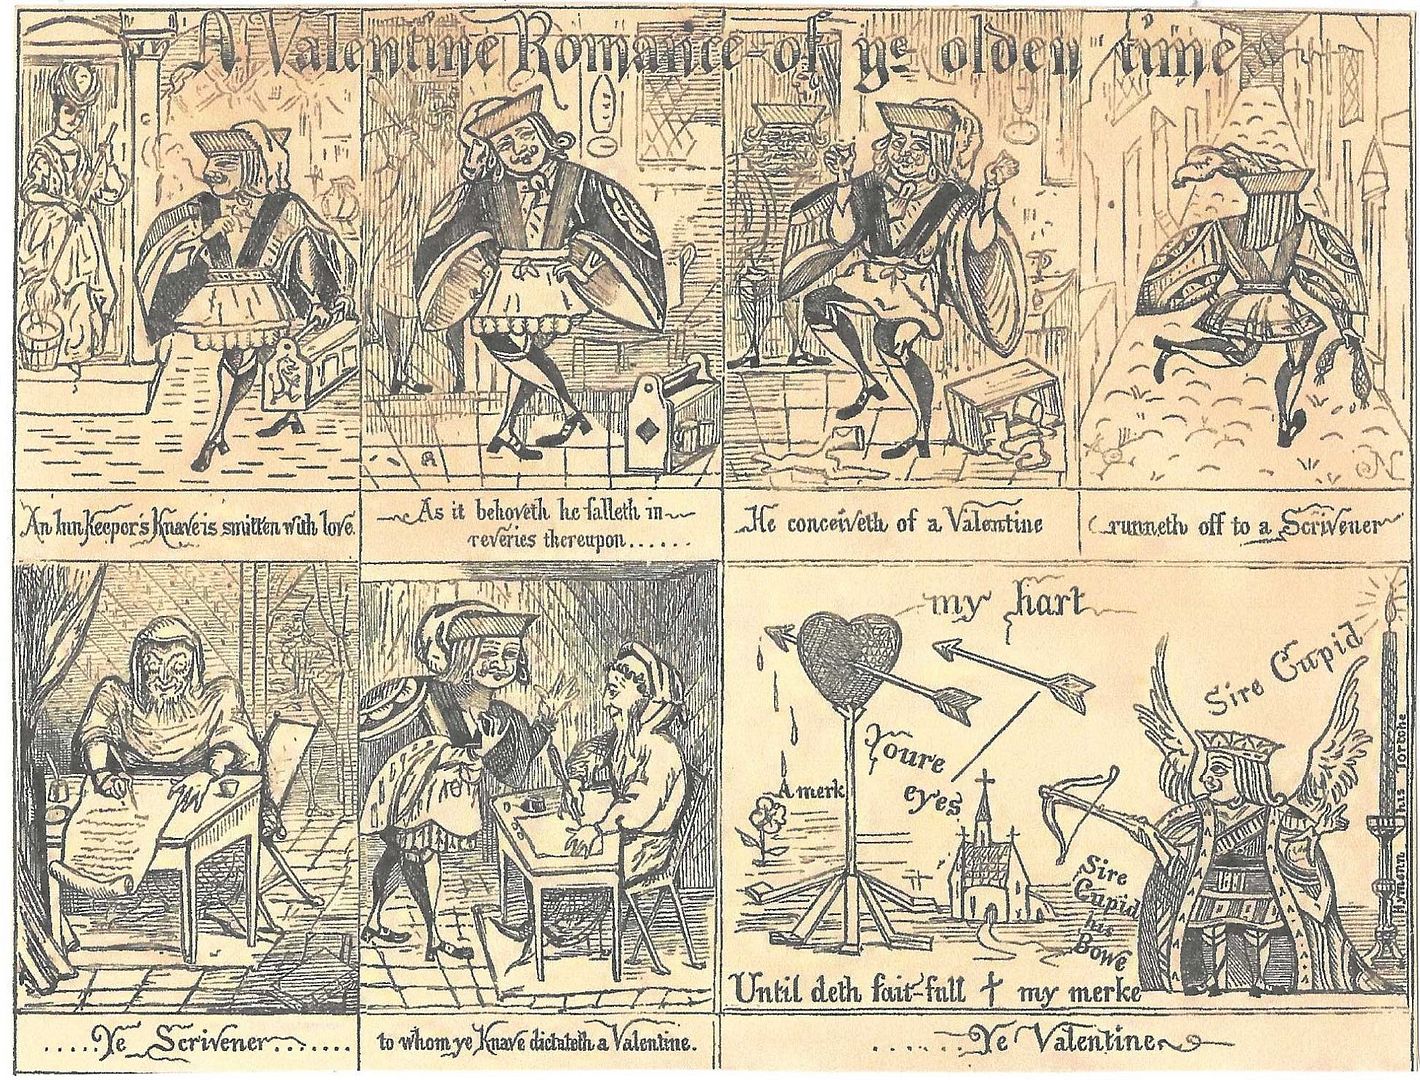 A Valentine Romance of ye olden time
An Inn Keeper's Knave is smitten with love.
As it behoveth he falleth in
reveries thereupon......
He conceiveth of a Valentine
runneth off to a Scrivener
N
.....Ye Scrivener.......
to whom ye Knave dictateth a Valentine.
my hart
Youre
eyes
A merk
Sire Cupid
Sire
Cupid
his
Bowe
Hymenn his Tortche
Until deth fait-full † my merke
......Ye Valentine